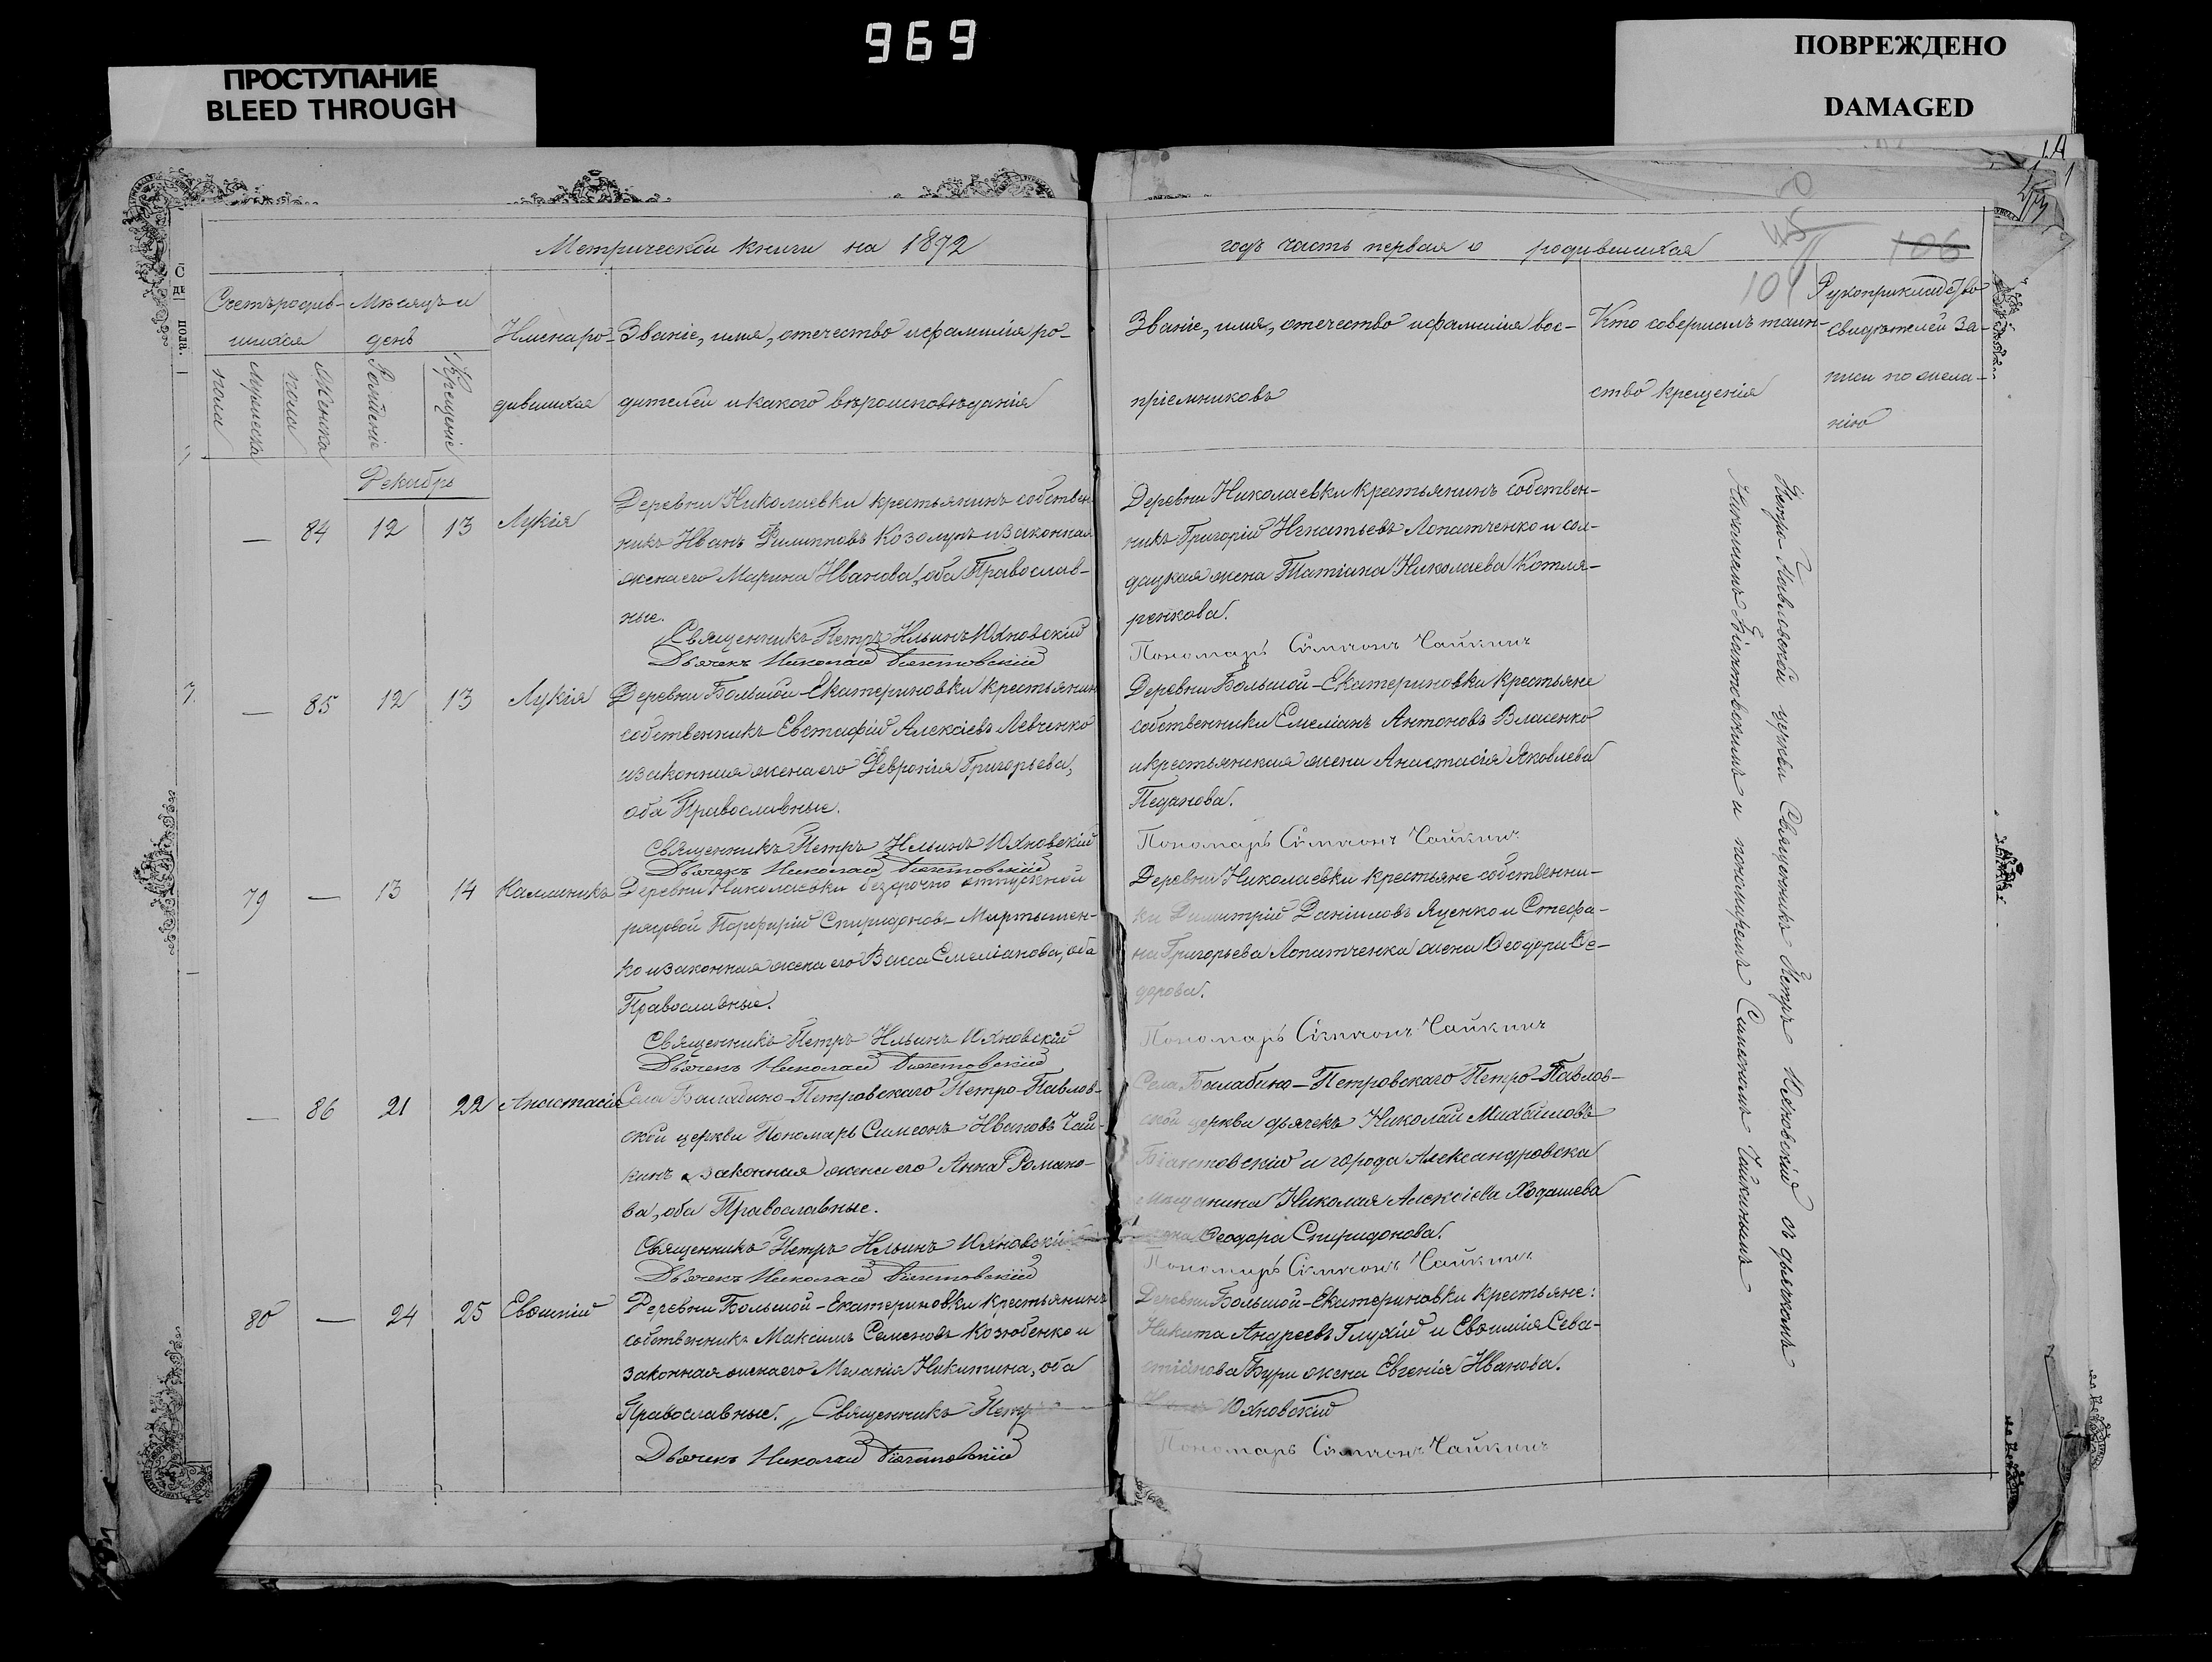 969
ПРОСТУПАНИЕ
BLEED THROUGH
ПОВРЕЖДЕНО
DAMAGED
Метрической книги на 1872
годъ часть первая о родившихся
106
104
Счетъ родив-
шихся
Мѣсяцъ и
день
Мужеска
пола
Женска
пола
Рожденіе
Крещеніе
Имена ро-
дившихся
Званіе, имя, отечество и фамилія ро-
дителей и какого вѣроисповѣданія
Званіе, имя, отечество и фамилія вос-
пріемниковъ
Кто совершалъ таин-
ство крещенія
Рукоприкладство
свидѣтелей за-
писи по жела-
нію
Декабрь
— 84 12 13 Лукія
Деревни Николаевки крестьянинъ собствен
никъ Иванъ Филипповъ Козолупъ и законная
жена его Марина Иванова, оба Православ-
ные.
Священникъ Петръ Ильинъ Юхновскій
Дьячекъ Николай Біянтовскій
Деревни Николаевки крестьянинъ собствен-
никъ Григорій Игнатьевъ Лопатченко и сол-
дацкая жена Татіана Николаева Котля-
ренкова.
Пономарь Симеонъ Чайкинъ
— 85 12 13 Лукія
Деревни Большой-Екатериновки крестьянинъ
собственникъ Евстафій Алексіевъ Левченко
и законная жена его Февронія Григорьева,
оба Православные.
Священникъ Петръ Ильинъ Юхновскій
Дьячекъ Николай Біянтовскій
Деревни Большой-Екатериновки крестьяне
собственники Емеліанъ Антоновъ Власенко
и крестьянская жена Анастасія Яковлева
Педанова.
Пономарь Симеонъ Чайкинъ
79 — 13 14 Каллиникъ
Деревни Николаевки безсрочно отпускной
рядовой Порфирій Спиридоновъ Мартынен-
ко и законная жена его Васса Емеліанова, оба
Православные.
Священникъ Петръ Ильинъ Юхновскій
Дьячекъ Николай Біянтовскій
Деревни Николаевки крестьяне собственни-
ки Димитрій Даніиловъ Яценко и Стефа-
на Григорьева Лопатченка жена Ѳеодора Ѳе-
дорова.
Пономарь Симеонъ Чайкинъ
— 86 21 22 Анастасія
Села Балабино-Петровскаго Петро-Павлов-
ской церкви Пономарь Симеонъ Ивановъ Чай-
кинъ и законная жена его Анна Романо-
ва, оба Православные.
Священникъ Петръ Ильинъ Юхновскій
Дьячекъ Николай Біянтовскій
Села Балабино-Петровскаго Петро-Павлов-
ской церкви дьячекъ Николай Михайловъ
Біянтовскій и города Александровска
мѣщанина Николая Алексіева Ходашева
жена Ѳеодора Спиридонова.
Пономарь Симеонъ Чайкинъ
80 — 24 25 Евѳимій
Деревни Большой-Екатериновки крестьянинъ
собственникъ Максимъ Семеновъ Козюбенко и
законная жена его Миланія Никитина, оба
Православные. Священникъ Петръ
Дьячекъ Николай Біянтовскій
Деревни Большой-Екатериновки крестьяне:
Никита Андреевъ Глухій и Евѳимія Сева-
стіанова Бури жена Евгенія Иванова.
Юхновскій
Пономарь Симеонъ Чайкинъ
Петро-Павловской церкви Священникъ Петръ Юхновскій съ дьячкомъ
Николаемъ Біянтовскимъ и пономаремъ Симеономъ Чайкинымъ